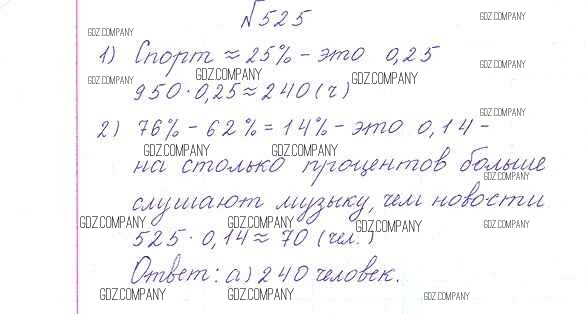 №525
GDZ.COMPANY
GDZ.COMPANY
1) Спорт ≈ 25% - это 0,25
GDZ.COMPANY
GDZ.COMPANY GDZ.COMPANY GDZ.COMPANY
950·0,25≈240(ч)
GDZ.COMPANY
2) 76% - 62% = 14% - это 0,14 -
GDZ.COMPANY GDZ.COMPANY
на столько процентов больше
GDZ.COMPANY
слушают музыку, чем новости
GDZ.COMPANY GDZ.COMPANY GDZ.COMPANY GDZ.COMPANY
525·0,14≈70 (чел.)
Ответ: а) 240 человек.
GDZ.COMPANY GDZ.COMPANY GDZ.COMPANY